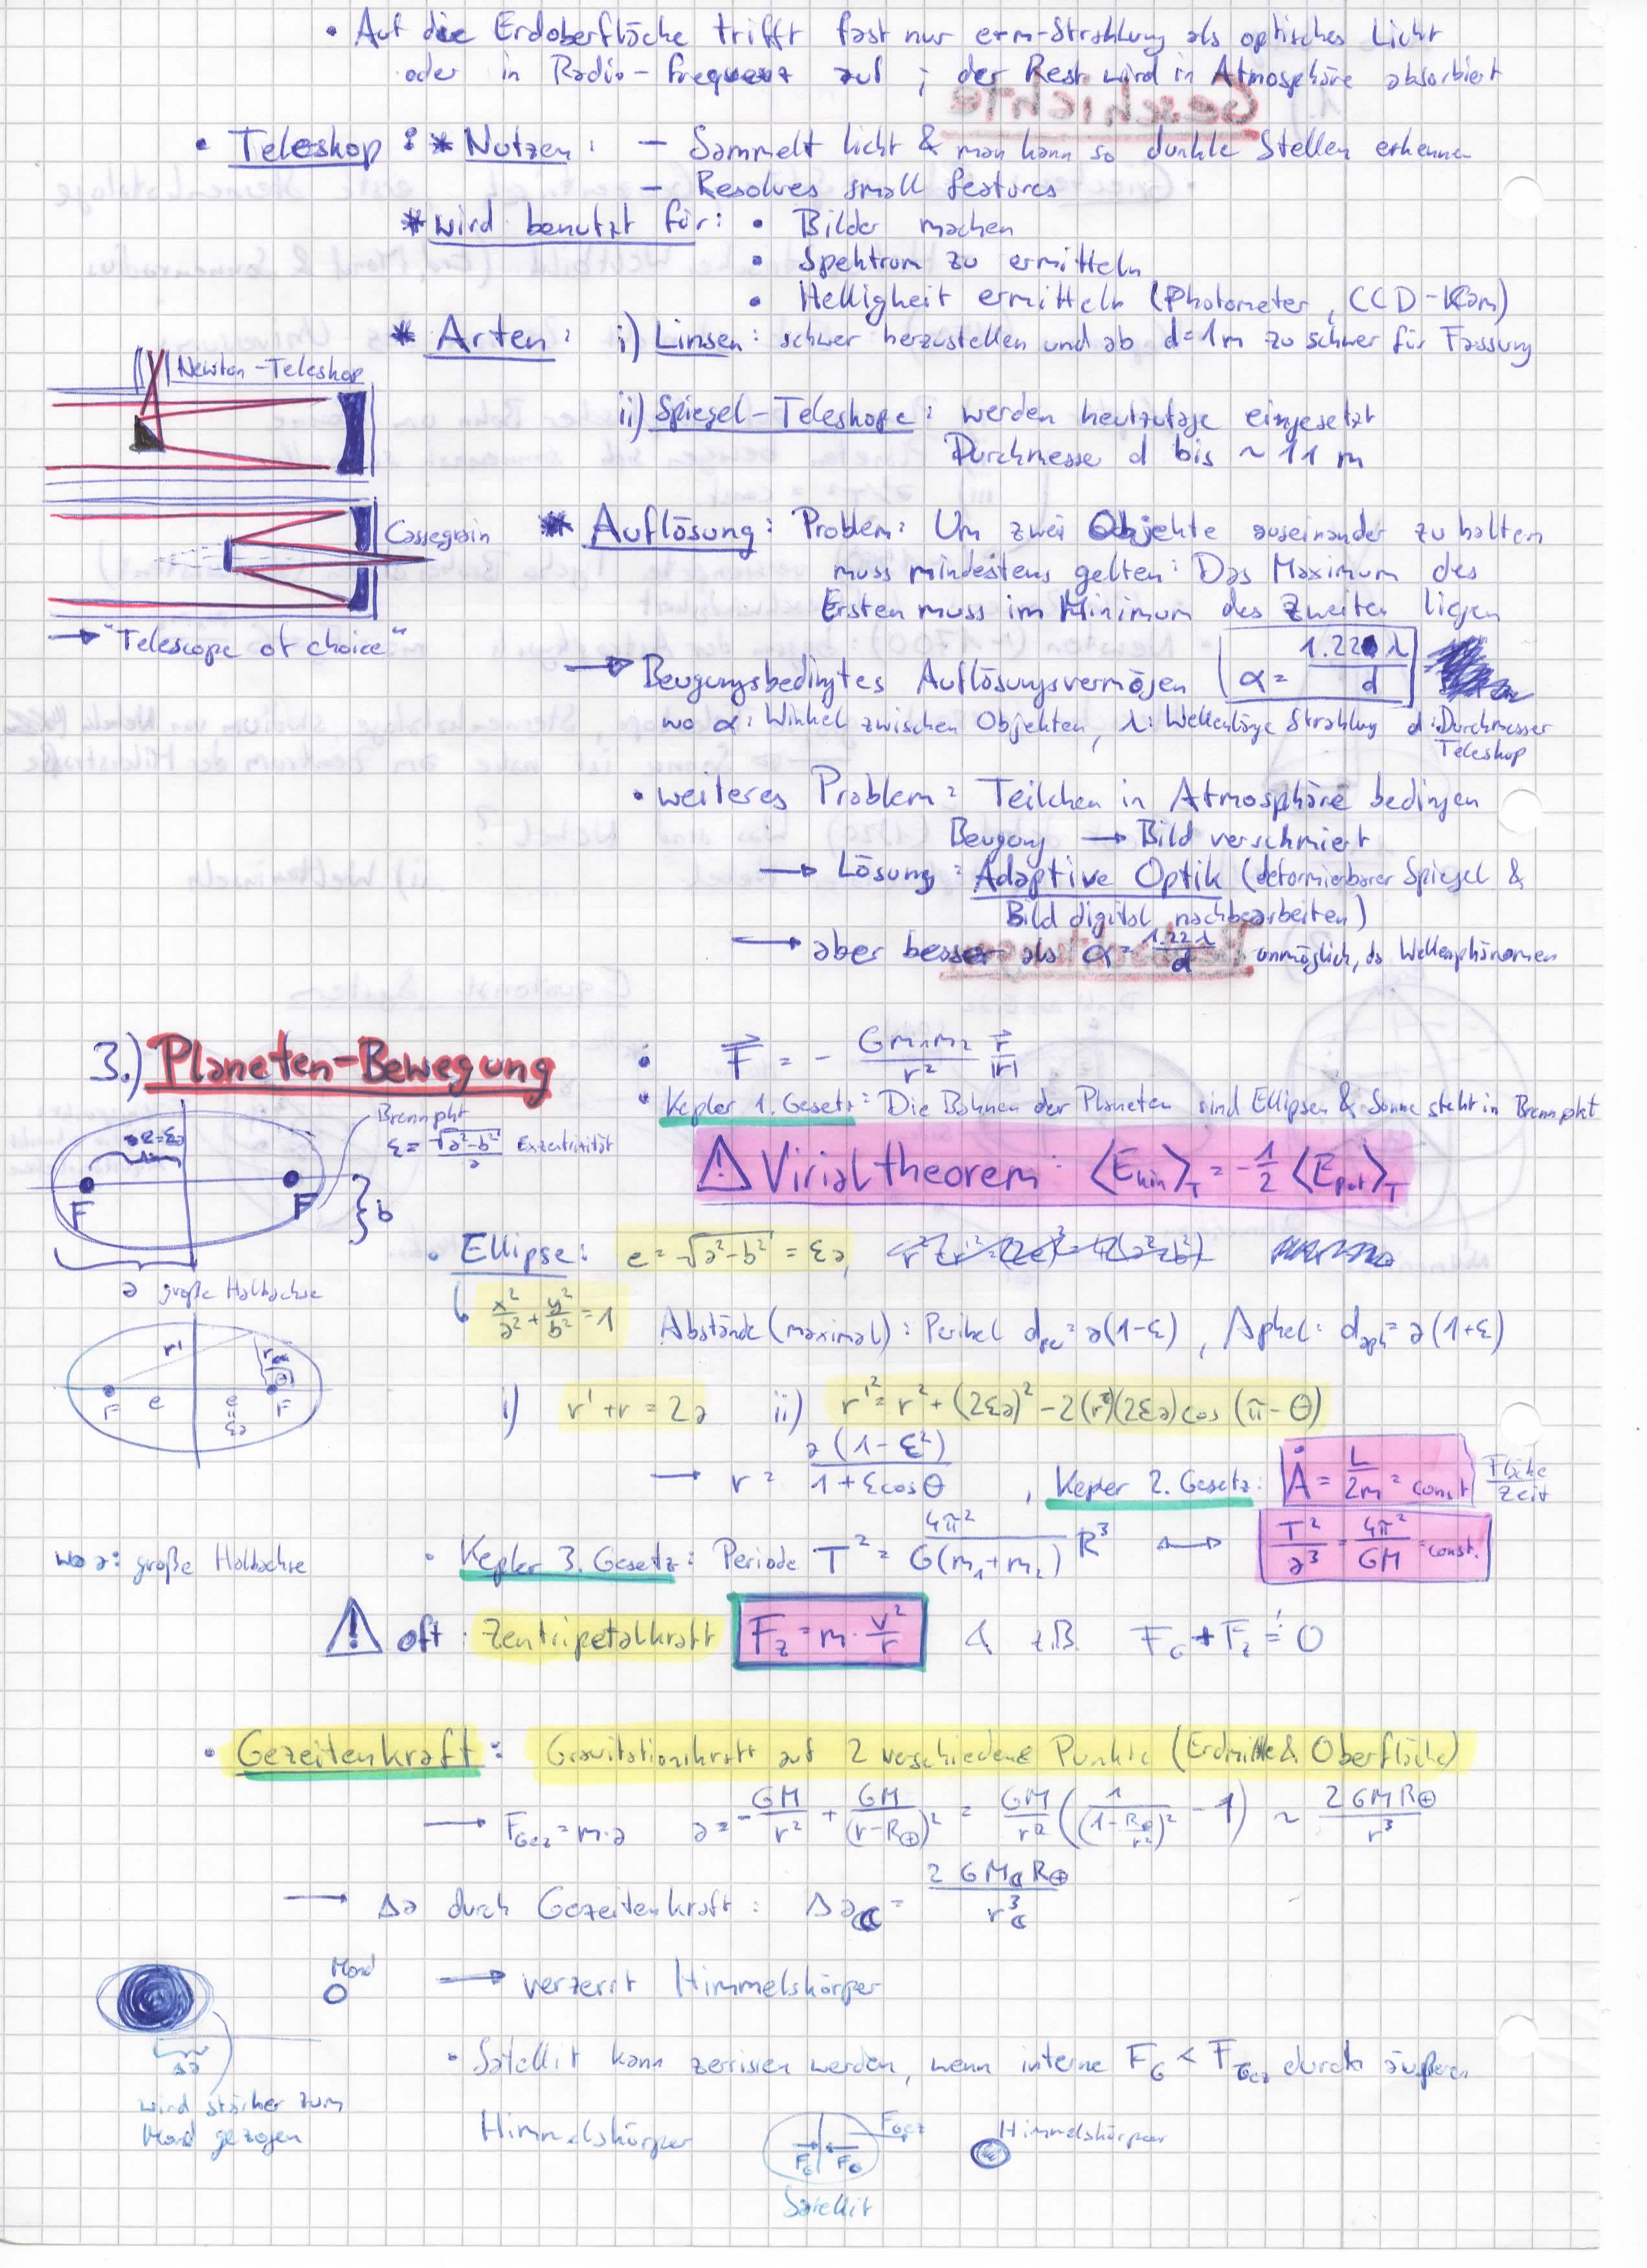 • Auf die Erdoberfläche trifft fast nur e-m-Strahlung als optisches Licht
oder in Radio-Frequenz auf ; der Rest wird in Atmosphäre absorbiert
• Teleskop : * Nutzen : – Sammelt licht & man kann so dunkle Stellen erkennen
– Resolves small features
* wird benutzt für: • Bilder machen
• Spektrum zu ermitteln
• Helligkeit ermitteln (Photometer, CCD-Kam)
* Arten : i) Linsen : schwer herzustellen und ab d=1m zu schwer für Fassung
Newton-Teleskop
ii) Spiegel-Teleskope : werden heutzutage eingesetzt
Durchmesse d bis ~ 11 m
Cassegrain
* Auflösung : Problem : Um zwei Objekte auseinander zu halten
muss mindestens gelten : Das Maximum des
Ersten muss im Minimum des Zweiten liegen
→ "Telescope of choice"
→ Beugungsbedingtes Auflösungsvermögen α = 1.22 λ / d
wo α : Winkel zwischen Objekten, λ : Wellenlänge Strahlung d : Durchmesser
Teleskop
• weiteres Problem : Teilchen in Atmosphäre bedingen
Beugung → Bild verschmiert
→ Lösung : Adaptive Optik (deformierbarer Spiegel &
Bild digital nachbearbeiten)
→ aber besser als α = 1.22 λ / d unmöglich, da Wellenphänomen
3.) Planeten-Bewegung
• F⃗ = - G m₁ m₂ / r² r⃗ / |r⃗|
• Kepler 1. Gesetz : Die Bahnen der Planeten sind Ellipsen & Sonne steht in Brennpkt
Brennpkt
ε = √(a²-b²) / a Exzentrizität
e=εa
F F b
a große Halbachse
⚠ Virialtheorem : ⟨E_kin⟩_T = -1/2 ⟨E_pot⟩_T
• Ellipse : e = √(a²-b²) = εa,
x²/a² + y²/b² = 1
Abstände (maximal) : Perihel d_pe = a(1-ε) , Aphel : d_aph = a(1+ε)
r' r θ
F e e F
εa
i) r' + r = 2a ii) r'² = r² + (2εa)² - 2(r)(2εa) cos (π - θ)
→ r = a(1-ε²) / 1+ε cos θ , Kepler 2. Gesetz : Ȧ = L/2m = const Fläche/Zeit
wo a : große Halbachse
• Kepler 3. Gesetz : Periode T² = 4π² / G(m₁+m₂) R³ ↔ T²/a³ = 4π²/GM = const.
⚠ oft : Zentripetalkraft F_z = m · v²/r & z.B. F_G + F_z != 0
• Gezeitenkraft : Gravitationskraft auf 2 verschiedene Punkte (Erdmitte & Oberfläche)
→ F_Gez = m·a a = - GM/r² + GM/(r-R⊕)² = GM/r² (1/(1-R⊕/r²)² - 1) ~ 2GMR⊕/r³
→ Δa durch Gezeitenkraft : Δa☾ = 2GM☾R⊕ / r☾³
Mond
→ verzerrt Himmelskörper
Δa
wird stärker zum
Mond gezogen
• Satellit kann zerrissen werden, wenn interne F_G < F_Gez durch äußeren
Himmelskörper
F_Gez
F_G F_G
Satellit
Himmelskörper